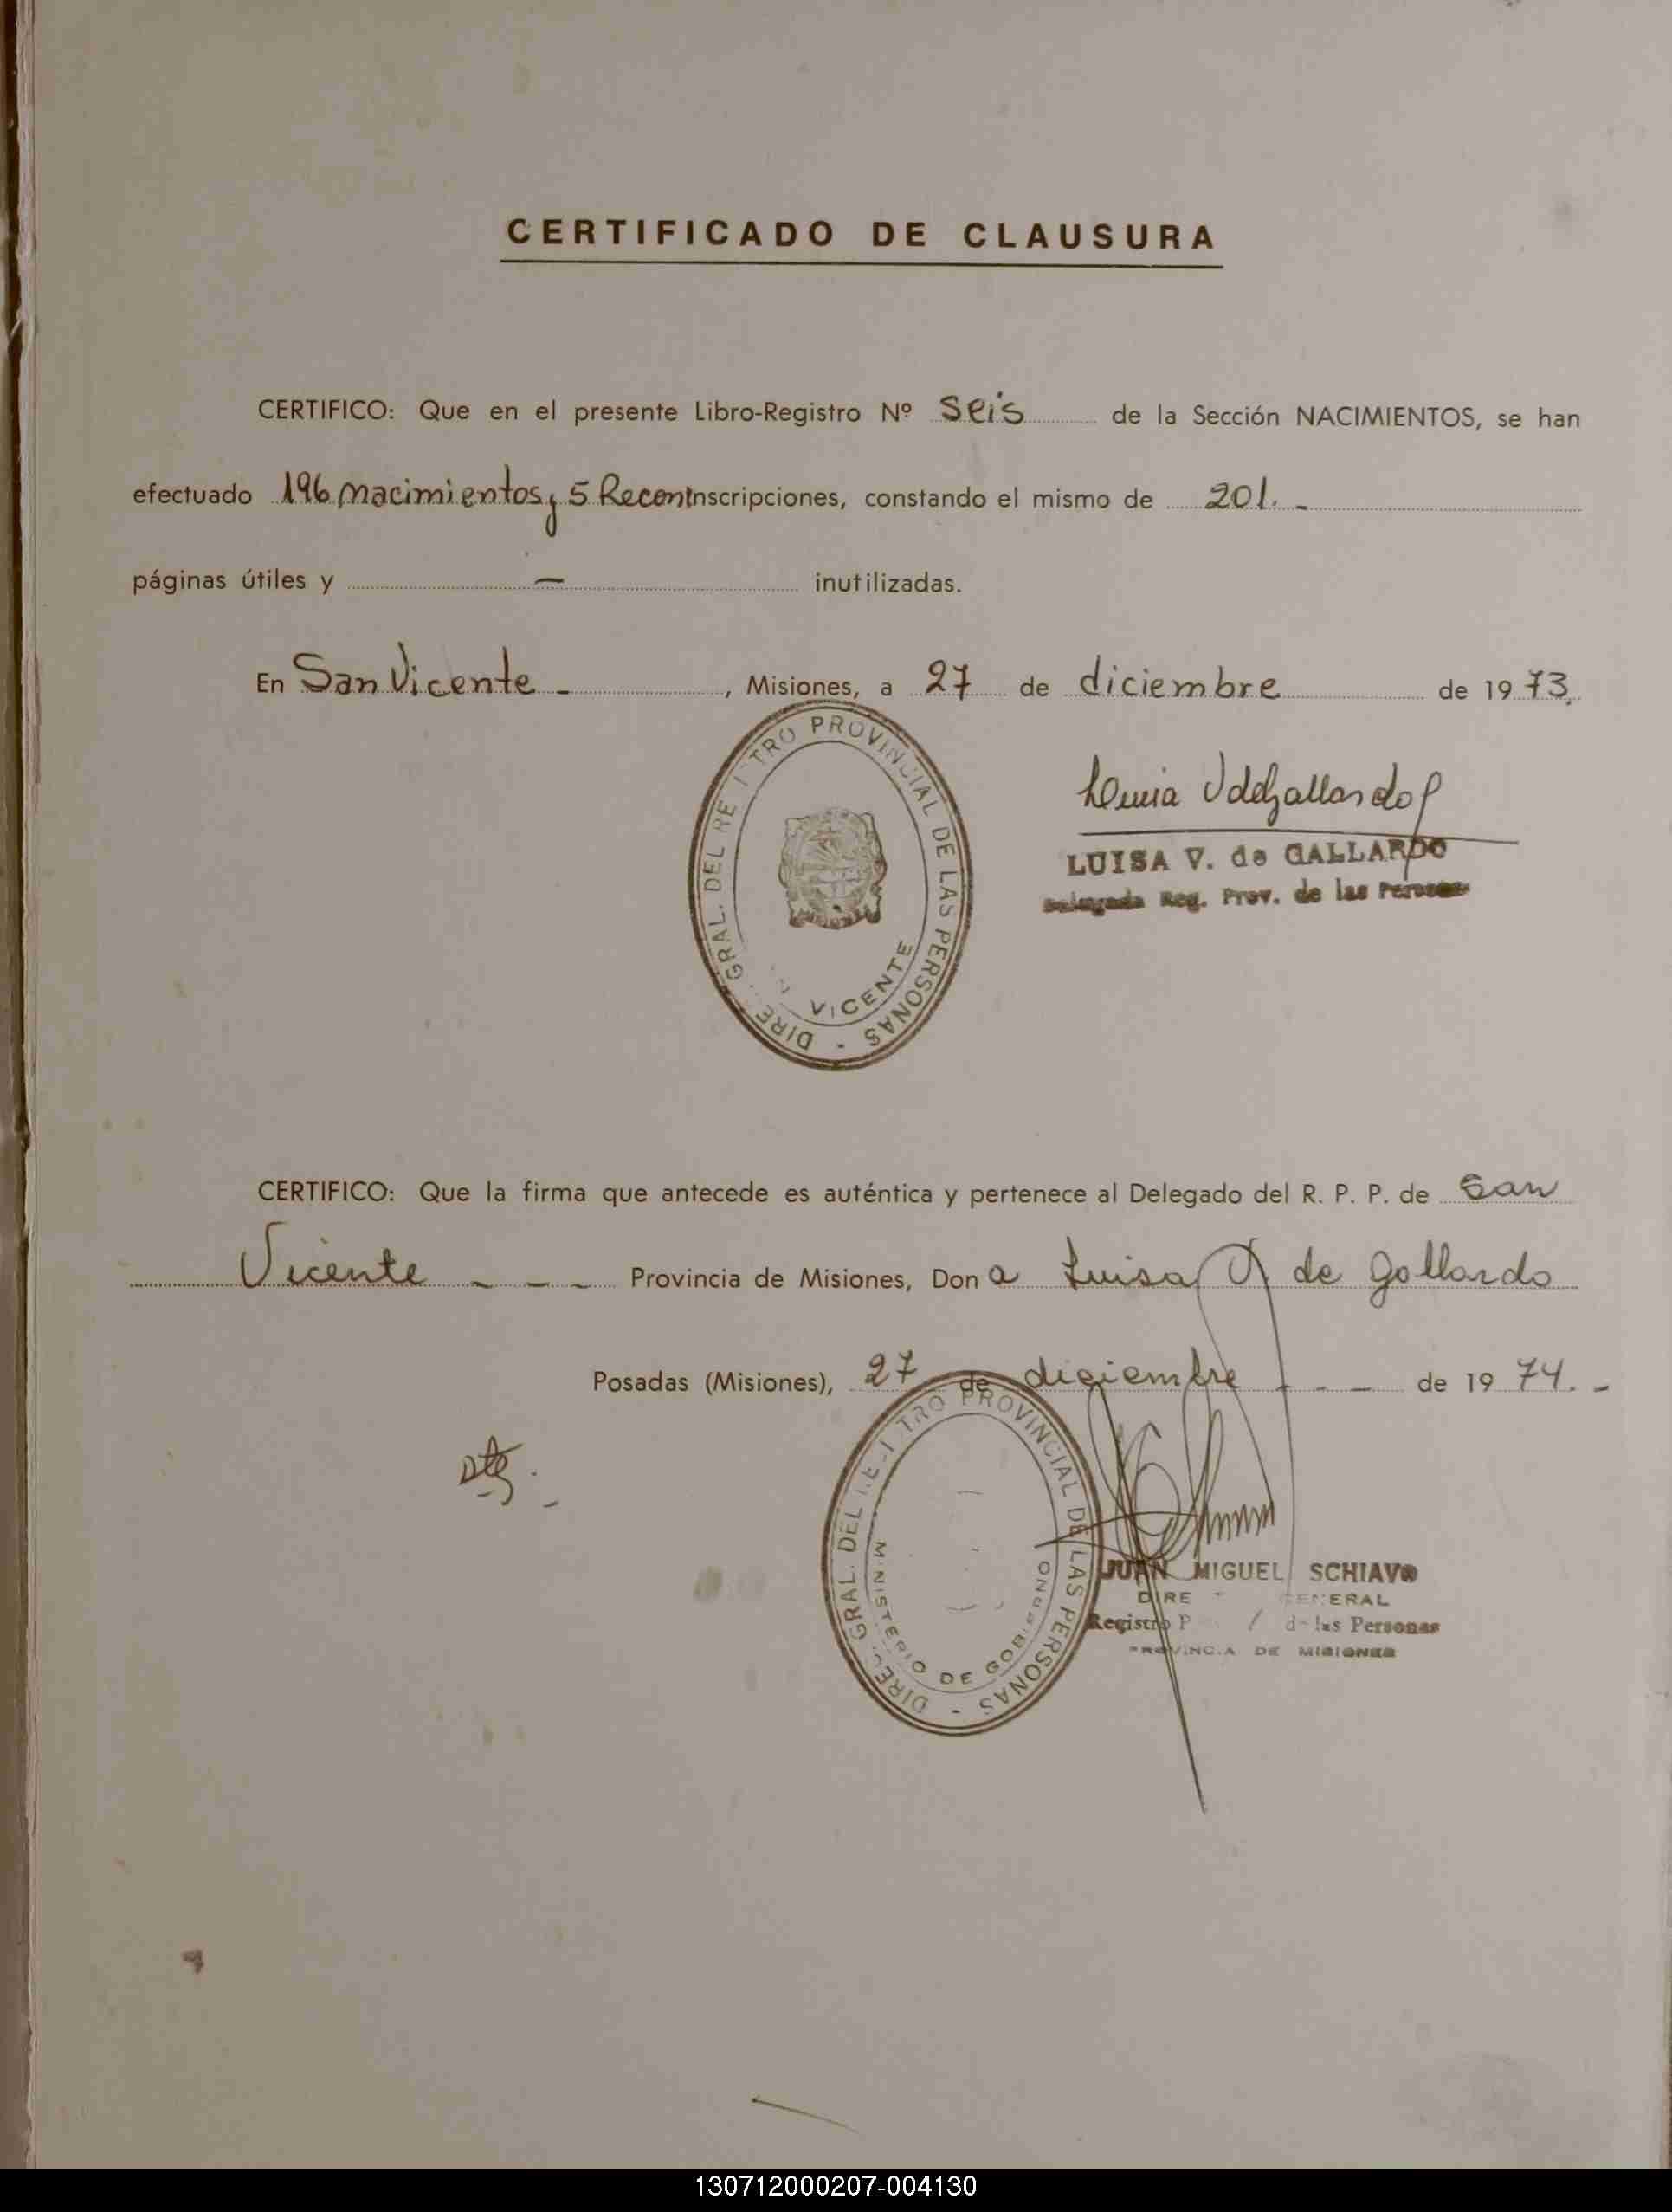 CERTIFICADO DE CLAUSURA
CERTIFICO: Que en el presente Libro-Registro Nº Seis de la Sección NACIMIENTOS, se han
efectuado 196 Nacimientos y 5 Recon Inscripciones, constando el mismo de 201. -
páginas útiles y — inutilizadas.
En San Vicente - , Misiones, a 27 de diciembre de 1973.
DIRE GRAL. DEL RE I TRO PROVINCIAL DE LAS PERSONAS -
VICENTE
LUISA V. de GALLARDO
Delegada Reg. Prov. de las Personas
CERTIFICO: Que la firma que antecede es auténtica y pertenece al Delegado del R. P. P. de San
Vicente - - - Provincia de Misiones, Don a Luisa V de Gallardo
Posadas (Misiones), 27 de diciembre - - - de 1974. -
DIREC GRAL. DEL RE I TRO PROVINCIAL DE LAS PERSONAS -
MINISTERIO DE GOBIERNO
JUAN MIGUEL SCHIAVO
DIRE GENERAL
Registro P de las Personas
PROVINCIA DE MISIONES
130712000207-004130